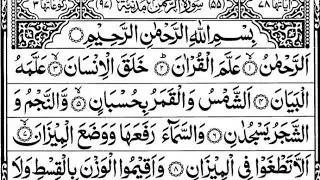 آياتها ٧٨ (٥٥) سورة الرحمن مدنية (٩٧) ركوعاتها ٣
بِسْمِ اللهِ الرَّحْمٰنِ الرَّحِيْمِ
الرَّحْمٰنُ ۝١ عَلَّمَ الْقُرْاٰنَ ۝٢ خَلَقَ الْاِنْسَانَ ۝٣ عَلَّمَهُ
الْبَيَانَ ۝٤ اَلشَّمْسُ وَالْقَمَرُ بِحُسْبَانٍ ۝٥ وَّالنَّجْمُ وَ
الشَّجَرُ يَسْجُدٰنِ ۝٦ وَالسَّمَآءَ رَفَعَهَا وَوَضَعَ الْمِيْزَانَ ۝٧
اَلَّا تَطْغَوْا فِي الْمِيْزَانِ ۝٨ وَاَقِيْمُوا الْوَزْنَ بِالْقِسْطِ وَلَا